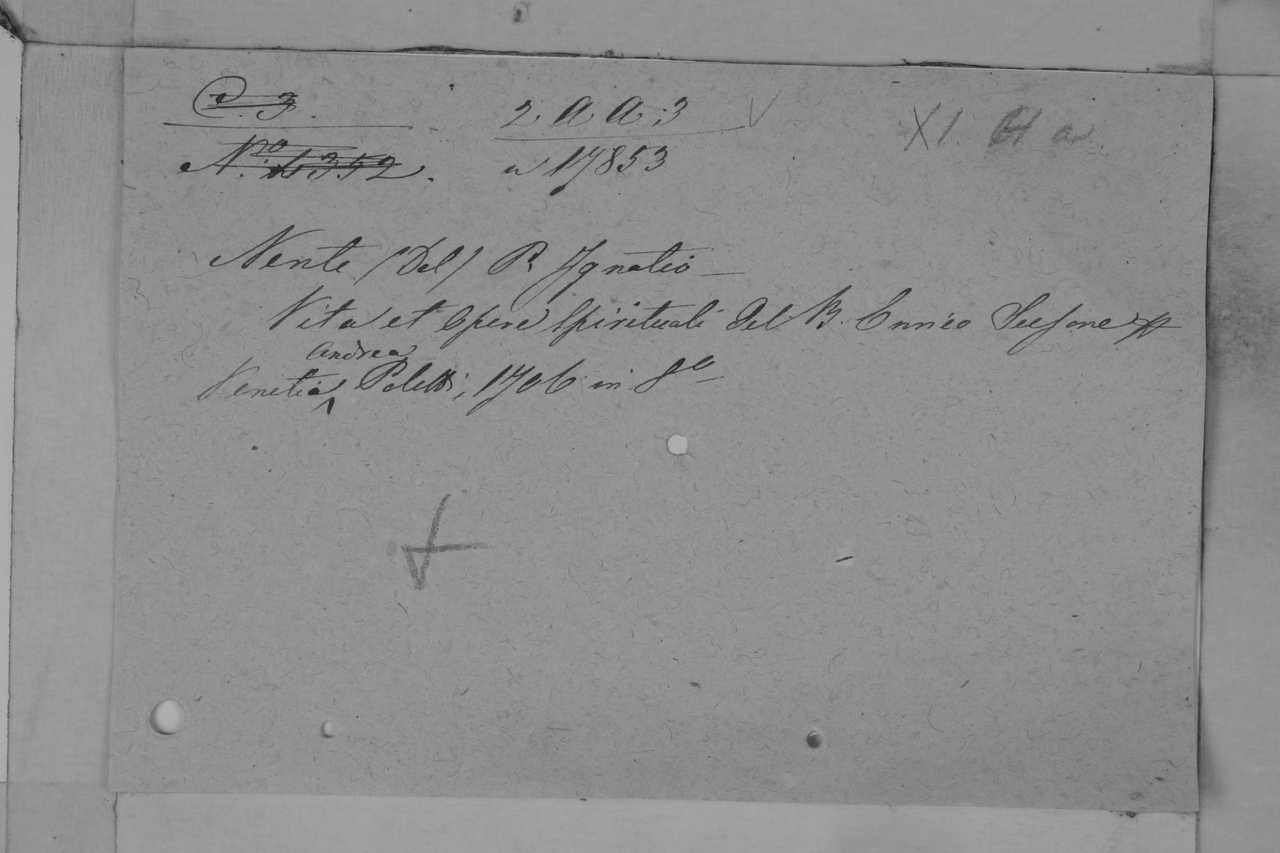 C. 3.
Nº. 4352.
2. A. A. 3
a 17853
XI. H a
Nente (Del) P. Ignatio
Vita et Opere Spirituali del B. Enrico Susone
Venetia, Andrea Poletti, 1706 in 8º